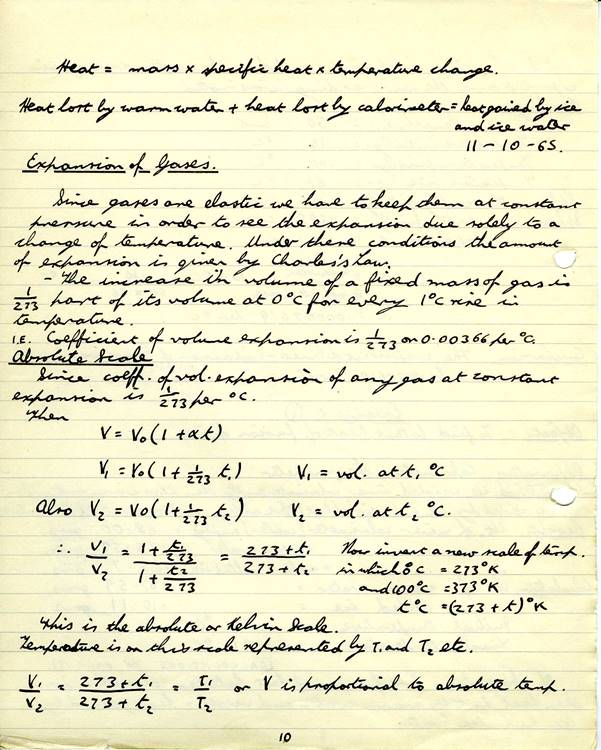 Heat = mass × specific heat × temperature change.
Heat lost by warm water + heat lost by calorimeter = heat gained by ice
and ice water
11-10-65.
Expansion of Gases.
Since gases are elastic we have to keep them at constant
pressure in order to see the expansion due solely to a
change of temperature. Under these conditions the amount
of expansion is given by Charles's Law.
- The increase in volume of a fixed mass of gas is
1/273 part of its volume at 0°C for every 1°C rise in
temperature.
I.E. Coefficient of volume expansion is 1/273 or 0.00366 per °C.
Absolute Scale
Since coeff. of vol. expansion of any gas at constant
expansion is 1/273 per °C.
Then
V = V₀(1 + αt)
V₁ = V₀(1 + 1/273 t₁) V₁ = vol. at t₁ °C
Also V₂ = V₀(1 + 1/273 t₂) V₂ = vol. at t₂ °C.
∴ V₁/V₂ = (1 + t₁/273)/(1 + t₂/273) = (273 + t₁)/(273 + t₂) Now invent a new scale of temp.
in which 0°C = 273°K
and 100°C = 373°K
t°C = (273 + t)°K
This is the absolute or Kelvin Scale.
Temperature is on this scale represented by T₁ and T₂ etc.
V₁/V₂ = (273 + t₁)/(273 + t₂) = T₁/T₂ or V is proportional to absolute temp.
10